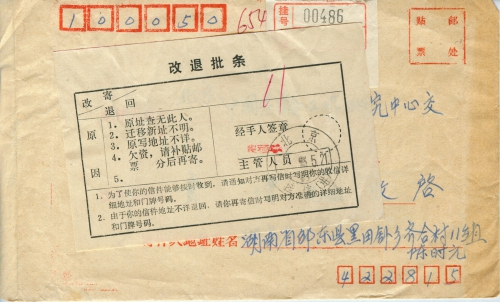 100050
654
挂号 00486
贴 邮
票 处
改退批条
11
究中心交
改 寄
退 回
原 因
1. 原址查无此人。
2. 迁移新址不明。
3. 原写地址不详。
4. 欠资，请补贴邮
票分后再寄。
5.
经手人签章
主管人员
北京
5.21
1. 为了使你的信件能够按时收到，请通知对方再写信时写明你的收信详
细地址和门牌号码。
2. 由于你的信件地址不详退回，请你再寄信时写明对方准确的详细地址
和门牌号码。
启
地址姓名：湖南省邵东县黑田铺乡齐合村11组
422815